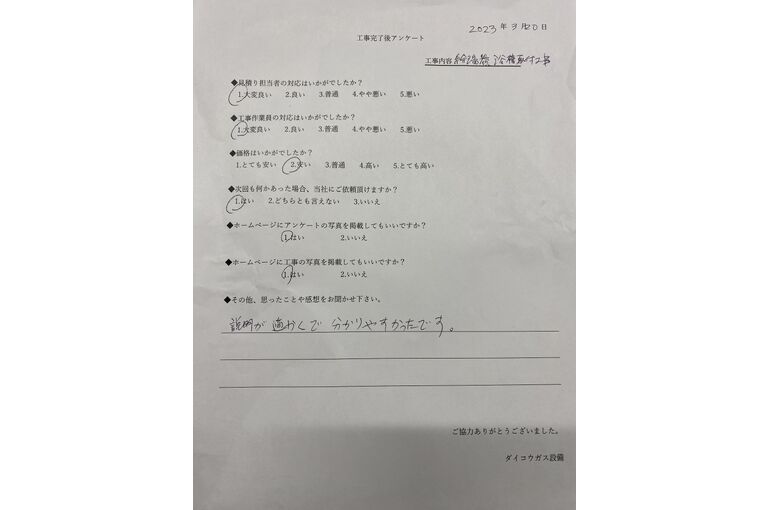 2023 年 3 月 20 日
工事完了後アンケート
工事内容 給湯器 浴槽取付工事
◆見積り担当者の対応はいかがでしたか?
1.大変良い 2.良い 3.普通 4.やや悪い 5.悪い
◆工事作業員の対応はいかがでしたか?
1.大変良い 2.良い 3.普通 4.やや悪い 5.悪い
◆価格はいかがでしたか?
1.とても安い 2.安い 3.普通 4.高い 5.とても高い
◆次回も何かあった場合、当社にご依頼頂けますか?
1.はい 2.どちらとも言えない 3.いいえ
◆ホームページにアンケートの写真を掲載してもいいですか?
1.はい 2.いいえ
◆ホームページに工事の写真を掲載してもいいですか?
1.はい 2.いいえ
◆その他、思ったことや感想をお聞かせ下さい。
説明が 適かくで 分かりやすかったです。
ご協力ありがとうございました。
ダイコウガス設備